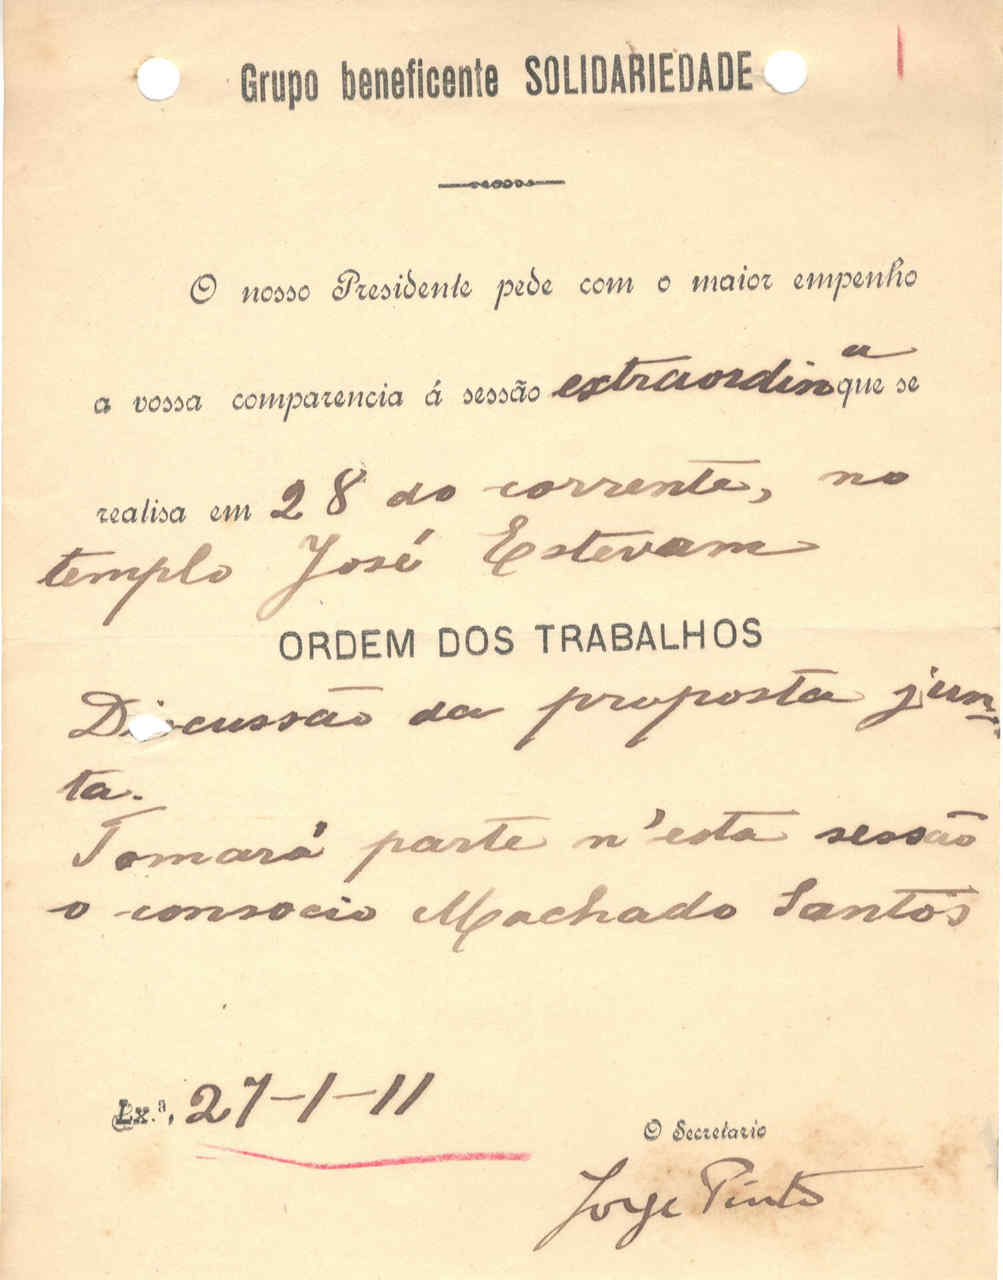 Grupo beneficente SOLIDARIEDADE
O nosso Presidente pede com o maior empenho
a vossa comparencia á sessão extraordin.a que se
realisa em 28 do corrente, no
templo José Estevam
ORDEM DOS TRABALHOS
Discussão da proposta jun-
ta.
Tomará parte n'esta sessão
o consocio Machado Santos
Lx.ª, 27-1-11
O Secretario
Jorge Pinto